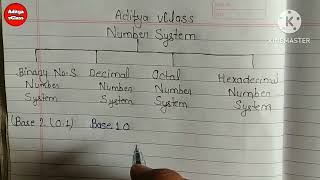 Aditya
vClass
Aditya vClass
Number System
KINEMASTER
Binary No.S Decimal Octal Hexadecimal
Number Number Number Number
System System System System
(Base 2 (0,1) Base 10